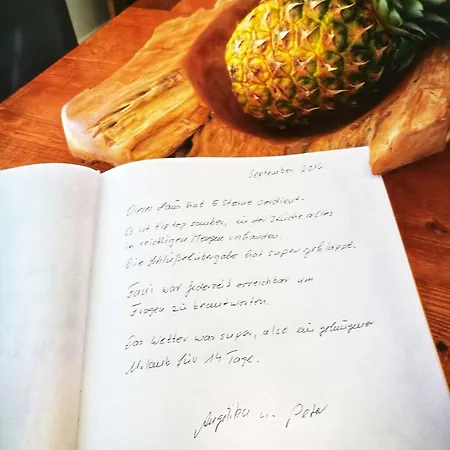 September 2016
Dieses Haus hat 5 Sterne verdient.
Es ist tip top sauber, in der Küche alles
in reichlichen Mengen vorhanden.
Die Schlüßelübergabe hat super geklappt.
war jederzeit erreichbar um
Fragen zu beantworten.
Das Wetter war super, also ein gelungener
Urlaub für 14 Tage.
Angelika u. Peter